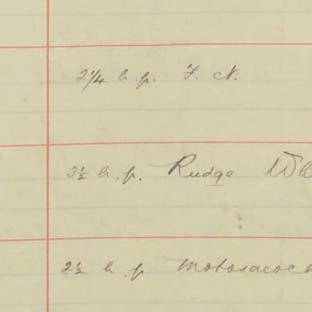 2¼ h.p. F. N.
3½ h.p. Rudge
2½ h.p. Motosacoche